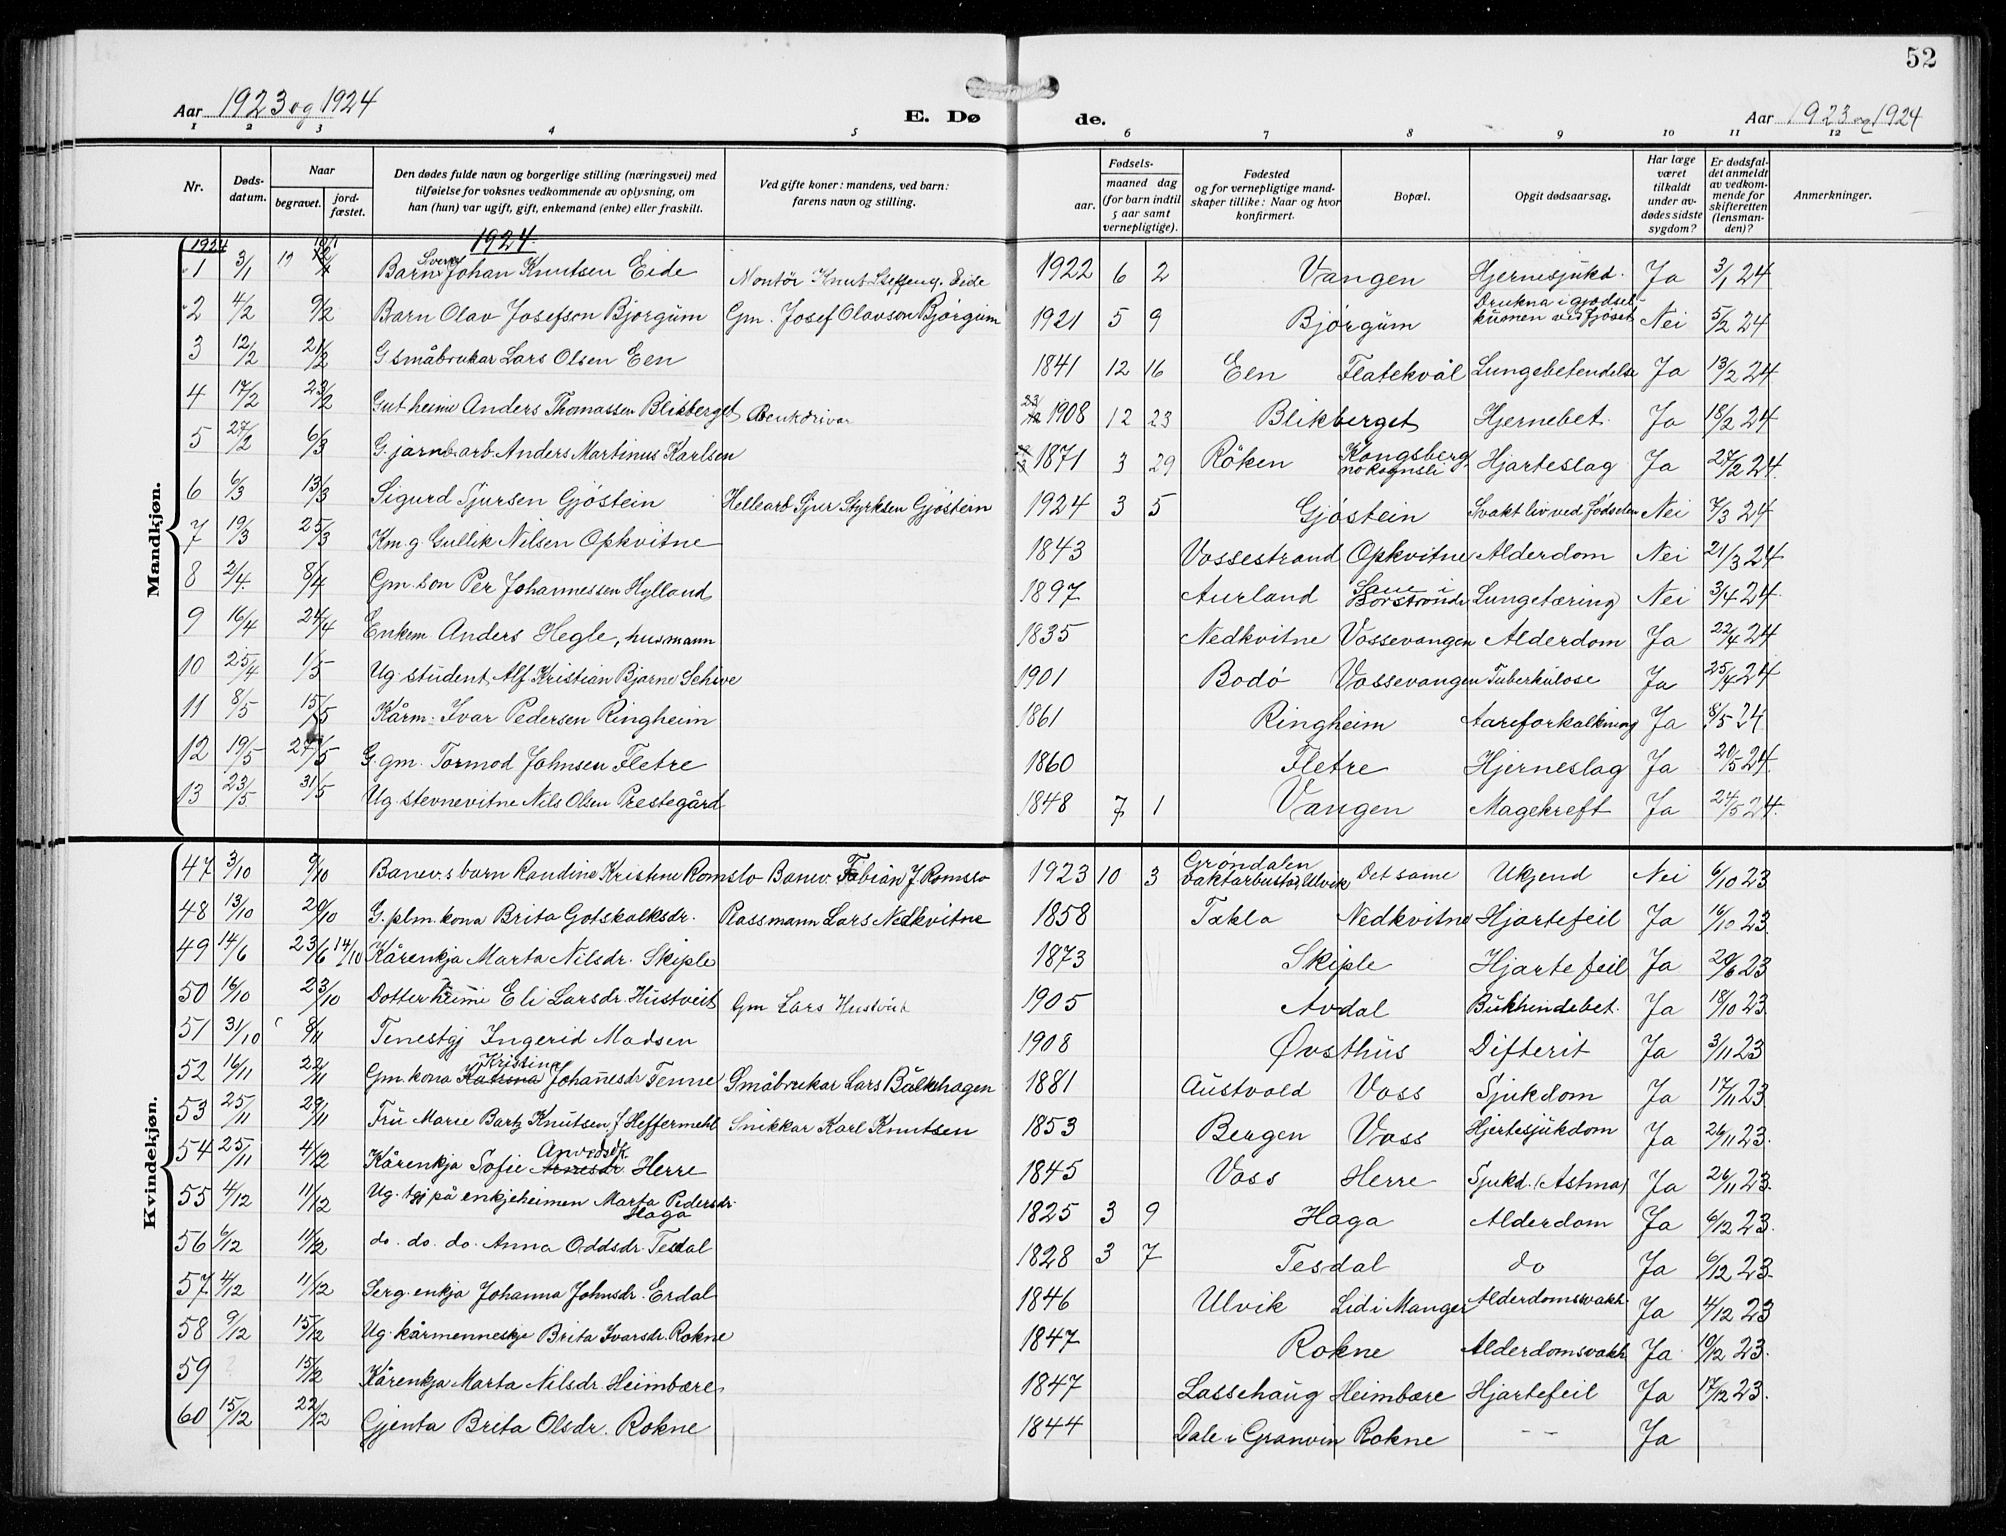 52
Aar 1923 og 1924
E. Dø
de.
Aar 1923 og 1924
1 2 3 4 5 6 7 8 9 10 11 12
Nr.
Døds-
datum.
Naar
begravet.
jord-
fæstet.
Den dødes fulde navn og borgerlige stilling (næringsvei) med
tilføielse for voksnes vedkommende av oplysning, om
han (hun) var ugift, gift, enkemand (enke) eller fraskilt.
Ved gifte koner: mandens, ved barn:
farens navn og stilling.
Fødsels-
aar.
maaned dag
(for barn indtil
5 aar samt
vernepligtige).
Fødested
og for vernepligtige mand-
skaper tillike: Naar og hvor
konfirmert.
Bopæl.
Opgit dødsaarsag.
Har læge
været
tilkaldt
under av-
dødes sidste
sygdom?
Er dødsfal-
det anmeldt
av vedkom-
mende for
skifteretten
(lensman-
den)?
Anmerkninger.
Mandkjøn.
1924 1924.
1 3/1 Barn Sverre Johan Knutsen Eide Montör Knut Steffeng. Eide 1922 6 2 Vangen Hjernesjukd. Ja 3/1 24
2 4/2 9/2 Barn Olav Josefson Bjørgum Gm. Josef Olavson Bjørgum 1921 5 9 Bjørgum Drukna i gjødsel-
kumen ved fjöset Nei 5/2 24
3 12/2 21/2 G småbrukar Lars Olsen Een 1841 12 16 Een Flatekvål Lungebetendelse Ja 13/2 24
4 17/2 23/2 Gut heime Anders Thomassen Blikberget 1908 12 23 Blikberget Hjernebet. Ja 18/2 24
5 27/2 6/3 G. jarnb.arb. Anders Martinus Karlsen 1871 3 29 Röken Kongsberg Hjarteslag Ja 27/2 24.
6 6/3 13/3 Sigurd Sjursen Gjøstein Hellearb Sjur Styrksen Gjøstein 1924 3 5 Gjøstein Svakt liv ved fødselen Nei 7/3 24
7 19/3 25/3 Km. g. Gullik Nilsen Opkvitne 1843 Vossestrand Opkvitne Alderdom Nei 21/3 24
8 2/4. 8/4 Gm. son Per Johannessen Hylland 1897 Aurland Lungetæring Nei 3/4 24.
9 16/4 24/4 Enkem Anders Hegle, husmann 1835 Nedkvitne Vossevangen Alderdom Ja 22/4 24
10 25/4 1/5 Ug. student Alf Kristian Bjarne Schive 1901 Bodö Vossevangen Tuberkulose Ja 25/4 24
11 8/5 15/5 Kårm. Ivar Pedersen Ringheim 1861 Ringheim Aareforkalkning Ja 8/5 24
12 19/5 G. gm. Tormod Johnsen Fletre 1860 Fletre Hjerneslag Ja 20/5 24.
13 23/5 31/5 Ug. stevnevitne Nils Olsen Prestegård 1848 7 1 Vangen Magekreft Ja 24/5 24.
Kvindekjøn.
47 3/10 9/10 Banev.s barn Randine Kristine Romslo Banev. Fabian J. Romslo 1923 10 3 Grøndalen
vaktarbustad, Ulvik Det same Ukjend Nei 6/10 23
48 13/10 20/10 G. plm. kona Brita Gotskalksdr. Plassmann Lars Nedkvitne 1858 Takla Nedkvitne Hjartefeil Ja 16/10 23.
49 14/6 23/6 14/10 Kårenkja Marta Nilsdr. Skiple 1873 Skiple Hjartefeil Ja 20/6 23
50 16/10 23/10 Dotter heime Eli Larsdr. Hustveit Gm Lars Hustveit 1905 Avdal Bukhindebet. Ja 18/10 23
51 31/10 8/11 Tenestgj Ingerid Madsen 1908 Øvsthus Difterit Ja 3/11 23
52 16/11 22/11 Gm. kona Katrina Kristina Johannesdr Tenne Småbrukar Lars Bakkhagen 1881 Austvold Voss Sjukdom Ja 17/11 23
53 25/11 29/11 Fru Marie Bartz Knutsen f Heffermehl Snikkar Karl Knutsen 1853 Bergen Voss Hjertesjukdom Ja 26/11 23.
54 25/11 4/12 Kårenkja Sofie Arnesdr Herre 1845 Voss Herre Sjukd. (Astma) Ja 26/11 23.
55 4/12 11/12 Ug. tgj på enkjeheimen Marta Pedersdr.
Haga 1825 3 9 Haga Alderdom Ja 6/12 23.
56 6/12 11/12 do. do. do. Anna Oddsdr. Tesdal 1828 3 7 Tesdal do Ja 6/12 23.
57 4/12 11/12 Serg. enkja Johanna Johnsdr. Erdal 1846 Ulvik Lid i Manger Alderdomssvakh. Ja 4/12 23
58 9/12 15/12 Ug. kårmenneskje Brita Ivarsdr. Rokne 1847 Rokne Alderdomsvakh Ja 10/12 23.
59 15/12 Kårenkja Marta Nilsdr. Heimbære 1847 Lassehaug Heimbære Hjartefeil Ja 17/12 23.
60 15/12 22/12 Gjenta Brita Olsdr. Rokne 1844 Dale i Granvin Rokne -- Ja